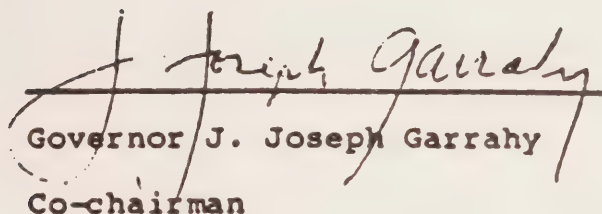 J Joseph Garrahy
Governor J. Joseph Garrahy
Co-chairman